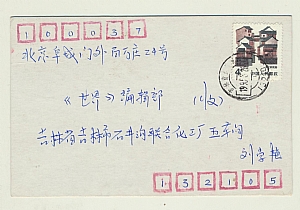 100037
北京阜城门外百万庄24号
《世界》编辑部 (收)
吉林省吉林市石井沟联合化工厂五车间
刘学艳
132105